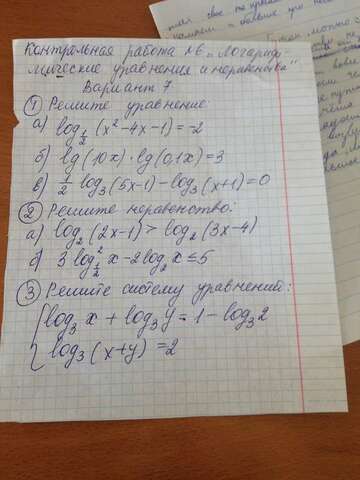 Контрольная работа №6 „Логариф-
мические уравнения и неравенства"
Вариант 7
① Решите уравнение:
а) log_{1/2} (x²-4x-1)=-2
б) lg(10x)·lg(0,1x)=3
в) 1/2 - log₃(5x-1)-log₃(x+1)=0
② Решите неравенство:
а) log₂(2x-1)>log₂(3x-4)
б) 3log²_{1/2} x-2log₂x≤5
③ Решите систему уравнений:
{log₃x + log₃y = 1-log₃2
log₃(x+y) = 2